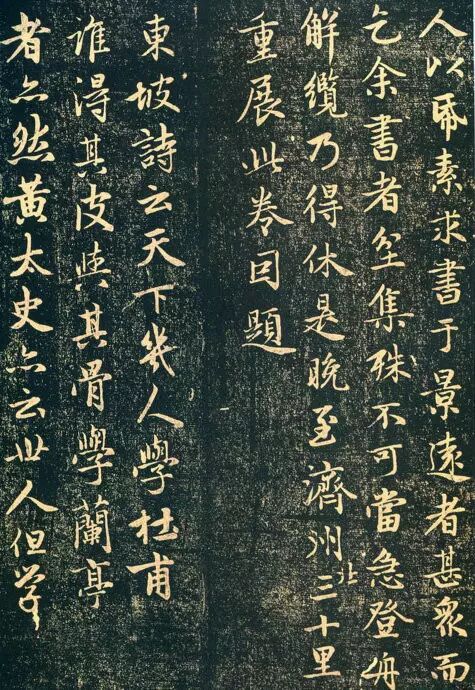 人以帋素求書于景遠者甚衆而
乞余書者坌集殊不可當急登舟
解纜乃得休是晚至濟州北三十里
重展此卷因題
東坡詩云天下幾人學杜甫
誰得其皮與其骨學蘭亭
者亦然黃太史亦云世人但学